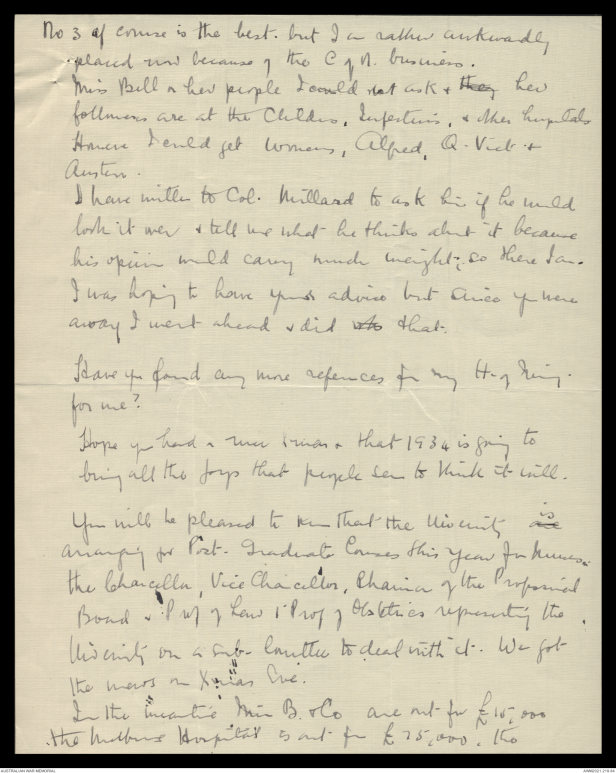 No 3 of course is the best. but I am rather awkwardly
placed now because of the C of N. business.
Miss Bell & her people I could not ask & they her
followers are at the Childrens, Infectious, & other hospitals
However I could get Womens, Alfred, Q. Vict &
Austin.
I have written to Col. Millard to ask him if he would
look it over & tell me what he thinks about it because
his opinion would carry much weight, so there I am.
I was hoping to have your advice but since you were
away I went ahead & did that.
Have you found any more references for my H. of Nursing.
for me?
Hope you had a nice Xmas & that 1934 is going to
bring all the joys that people seem to think it will.
You will be pleased to know that the University are is
arranging for Post-Graduate Courses this year for Nurses
the Chancellor, Vice Chancellor, Chairman of the Professorial
Board & Prof of Law & Prof of Obstetrics representing the
University on a Sub-Committee to deal with it. We got
the news on Xmas Eve.
In the meantime Miss B. & Co are out for £15,000
the Melbourne Hospital is out for £75,000, the
AUSTRALIAN WAR MEMORIAL